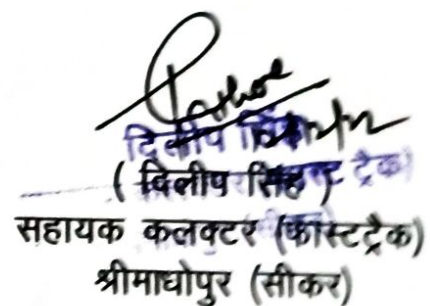 दिलीप सिंह
( दिलीप सिंह )
सहायक कलक्टर (फास्टट्रैक)
श्रीमाधोपुर (सीकर)